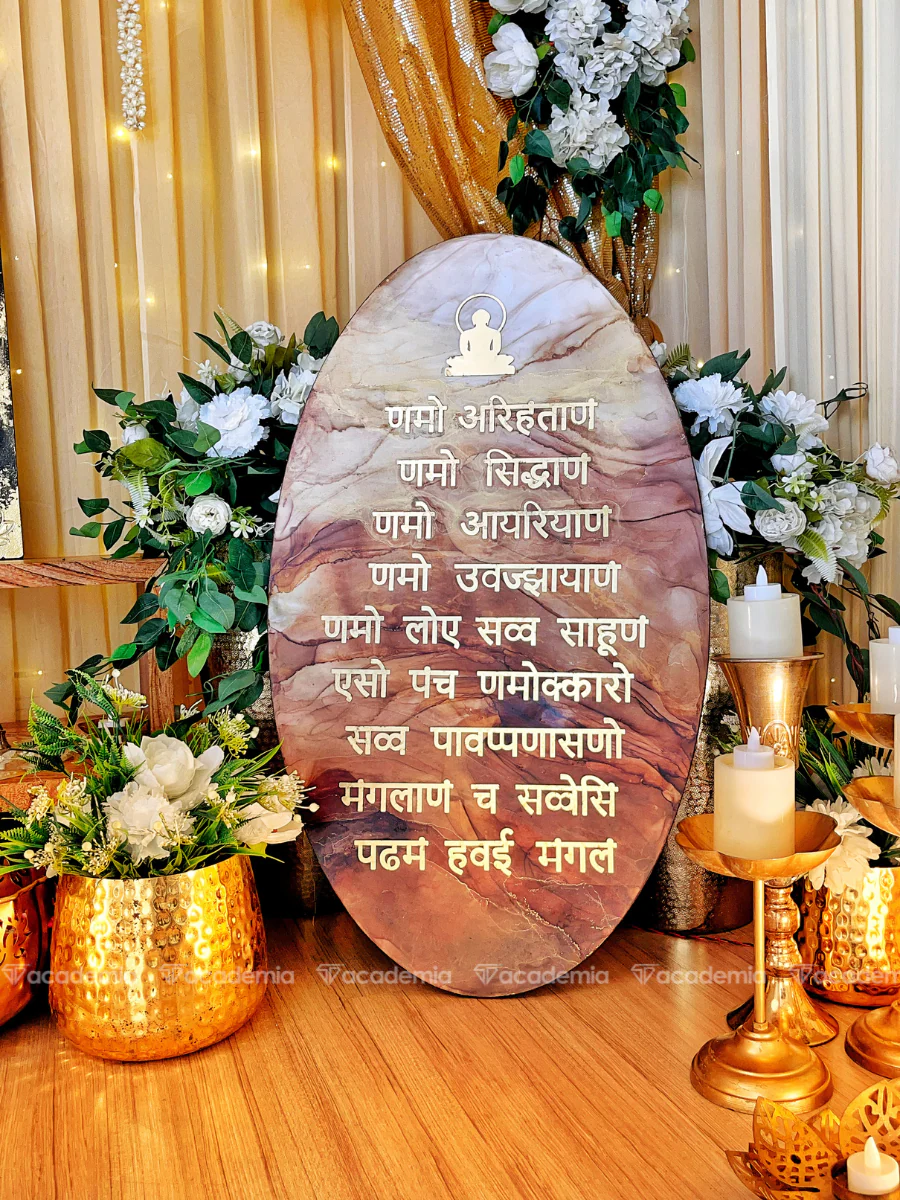 णमो अरिहंताणं
णमो सिद्धाणं
णमो आयरियाणं
णमो उवज्झायाणं
णमो लोए सव्व साहूणं
एसो पंच णमोक्कारो
सव्व पावप्पणासणो
मंगलाणं च सव्वेसिं
पढमं हवई मंगलं
academia academia academia academia academia academia